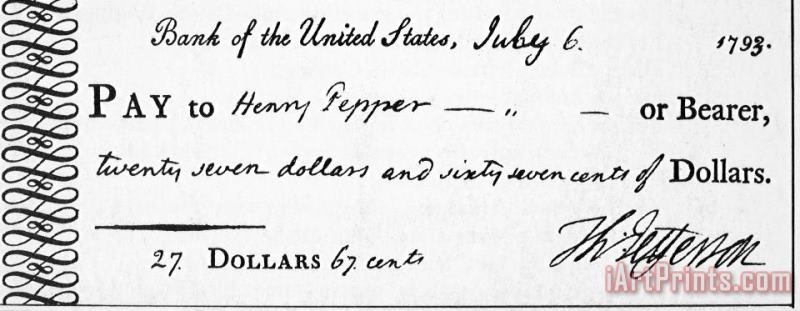 Bank of the United States, July 6. 1793.
PAY to Henry Pepper — " — or Bearer,
twenty seven dollars and sixty seven cents of Dollars.
27. DOLLARS 67. cents
Th: Jefferson
iArtPrints.com